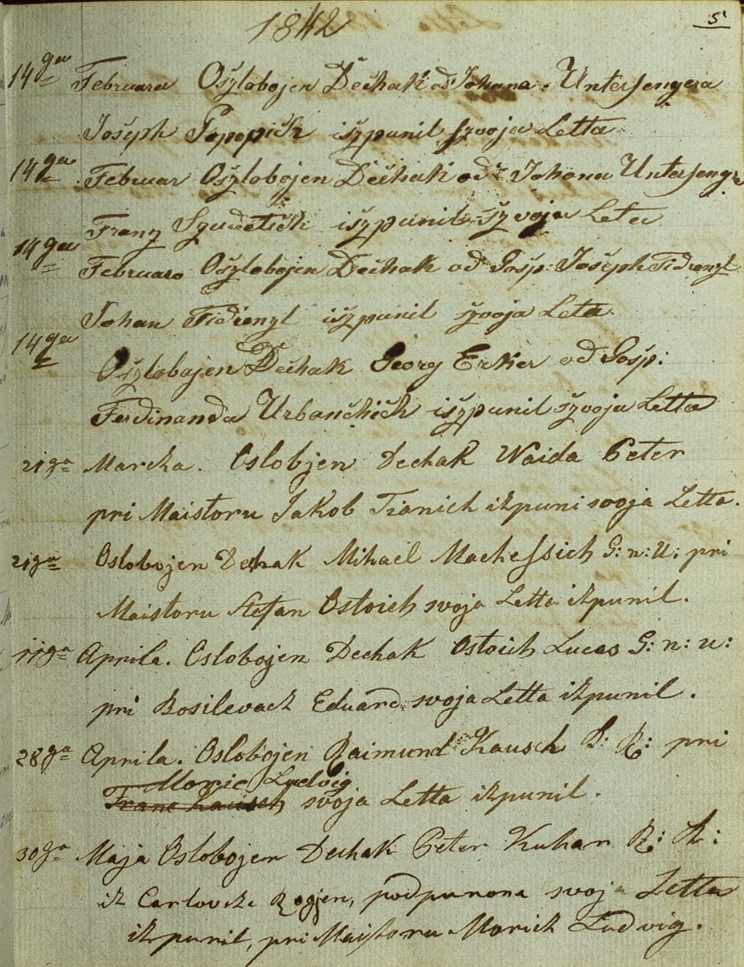 1842
5
14ga Februara Oszlobojen Dechak od Johana Untersengera
Joseph Popopich iszpunil szvoja Letta
14ga Februar Oszlobojen Dechak od Johana Unterseng
Franz iszpunil szvoja Leta
14ga Februaro Oszlobojen Dechak od Gosp: Joseph Fidrenzl
Johan Fidrenzl iszpunil szvoja Leta
14ga Oszlobajen Dechak Georg Erker od Gosp:
Ferdinanda Urbanchich iszpunil szvoja Letta
21ga Marcza. Oslobjen Dechak Waida Peter
pri Maistoru Jakob Tranich izpuni svoja Letta.
21ga Oslobojen Dechak Mihael Machessich G: n: U: pri
Maistoru Stefan Ostoich svoja Letta izpunil.
11ga Aprila. Oslobojen Dechak Ostoich Lucas G: n: u:
pri Bosilevacz Eduard, svoja Letta izpunil.
28ga Aprila. Oslobojen Raimund Kausch S: R: pri
Moric Ludvig
Franc Kausch svoja Letta izpunil.
30ga Maja Oslobojen Dechak Peter Kuhar R: K:
iz Carlovcze Rogjen, podpunona svoja Letta
izpunil, pri Maistoru Morich Ludvig.